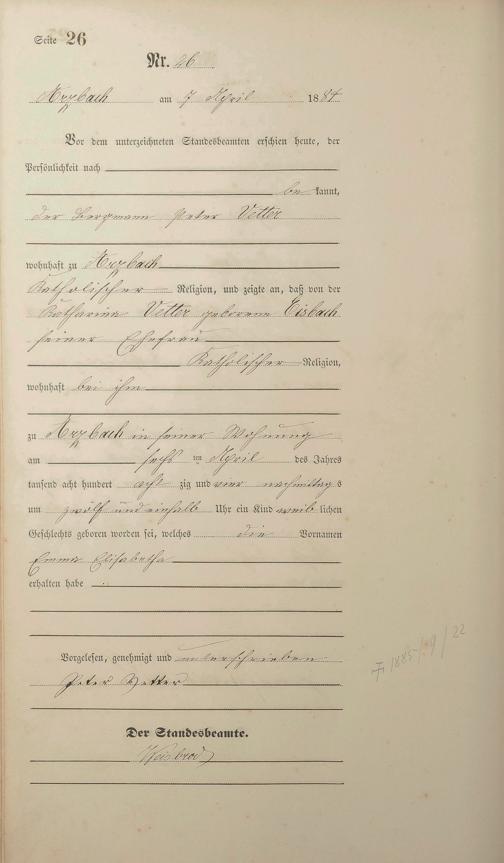 Seite 26
Nr. 26
Arzbach am 7 April 1884
Vor dem unterzeichneten Standesbeamten erschien heute, der
Persönlichkeit nach
be kannt,
der Bergmann Peter Vetter
wohnhaft zu Arzbach
Katholischer Religion, und zeigte an, daß von der
Katharina Vetter geborene Eisbach
seiner Ehefrau
Katholischer Religion,
wohnhaft bei ihm
zu Arzbach in seiner Wohnung
am sechs ten April des Jahres
tausend acht hundert acht zig und vier nachmittag s
um zwölf und einhalb Uhr ein Kind weib lichen
Geschlechts geboren worden sei, welches die Vornamen
Emma Elisabetha
erhalten habe
Vorgelesen, genehmigt und unterschrieben
Peter Vetter
Der Standesbeamte.
Weisbrod
1885